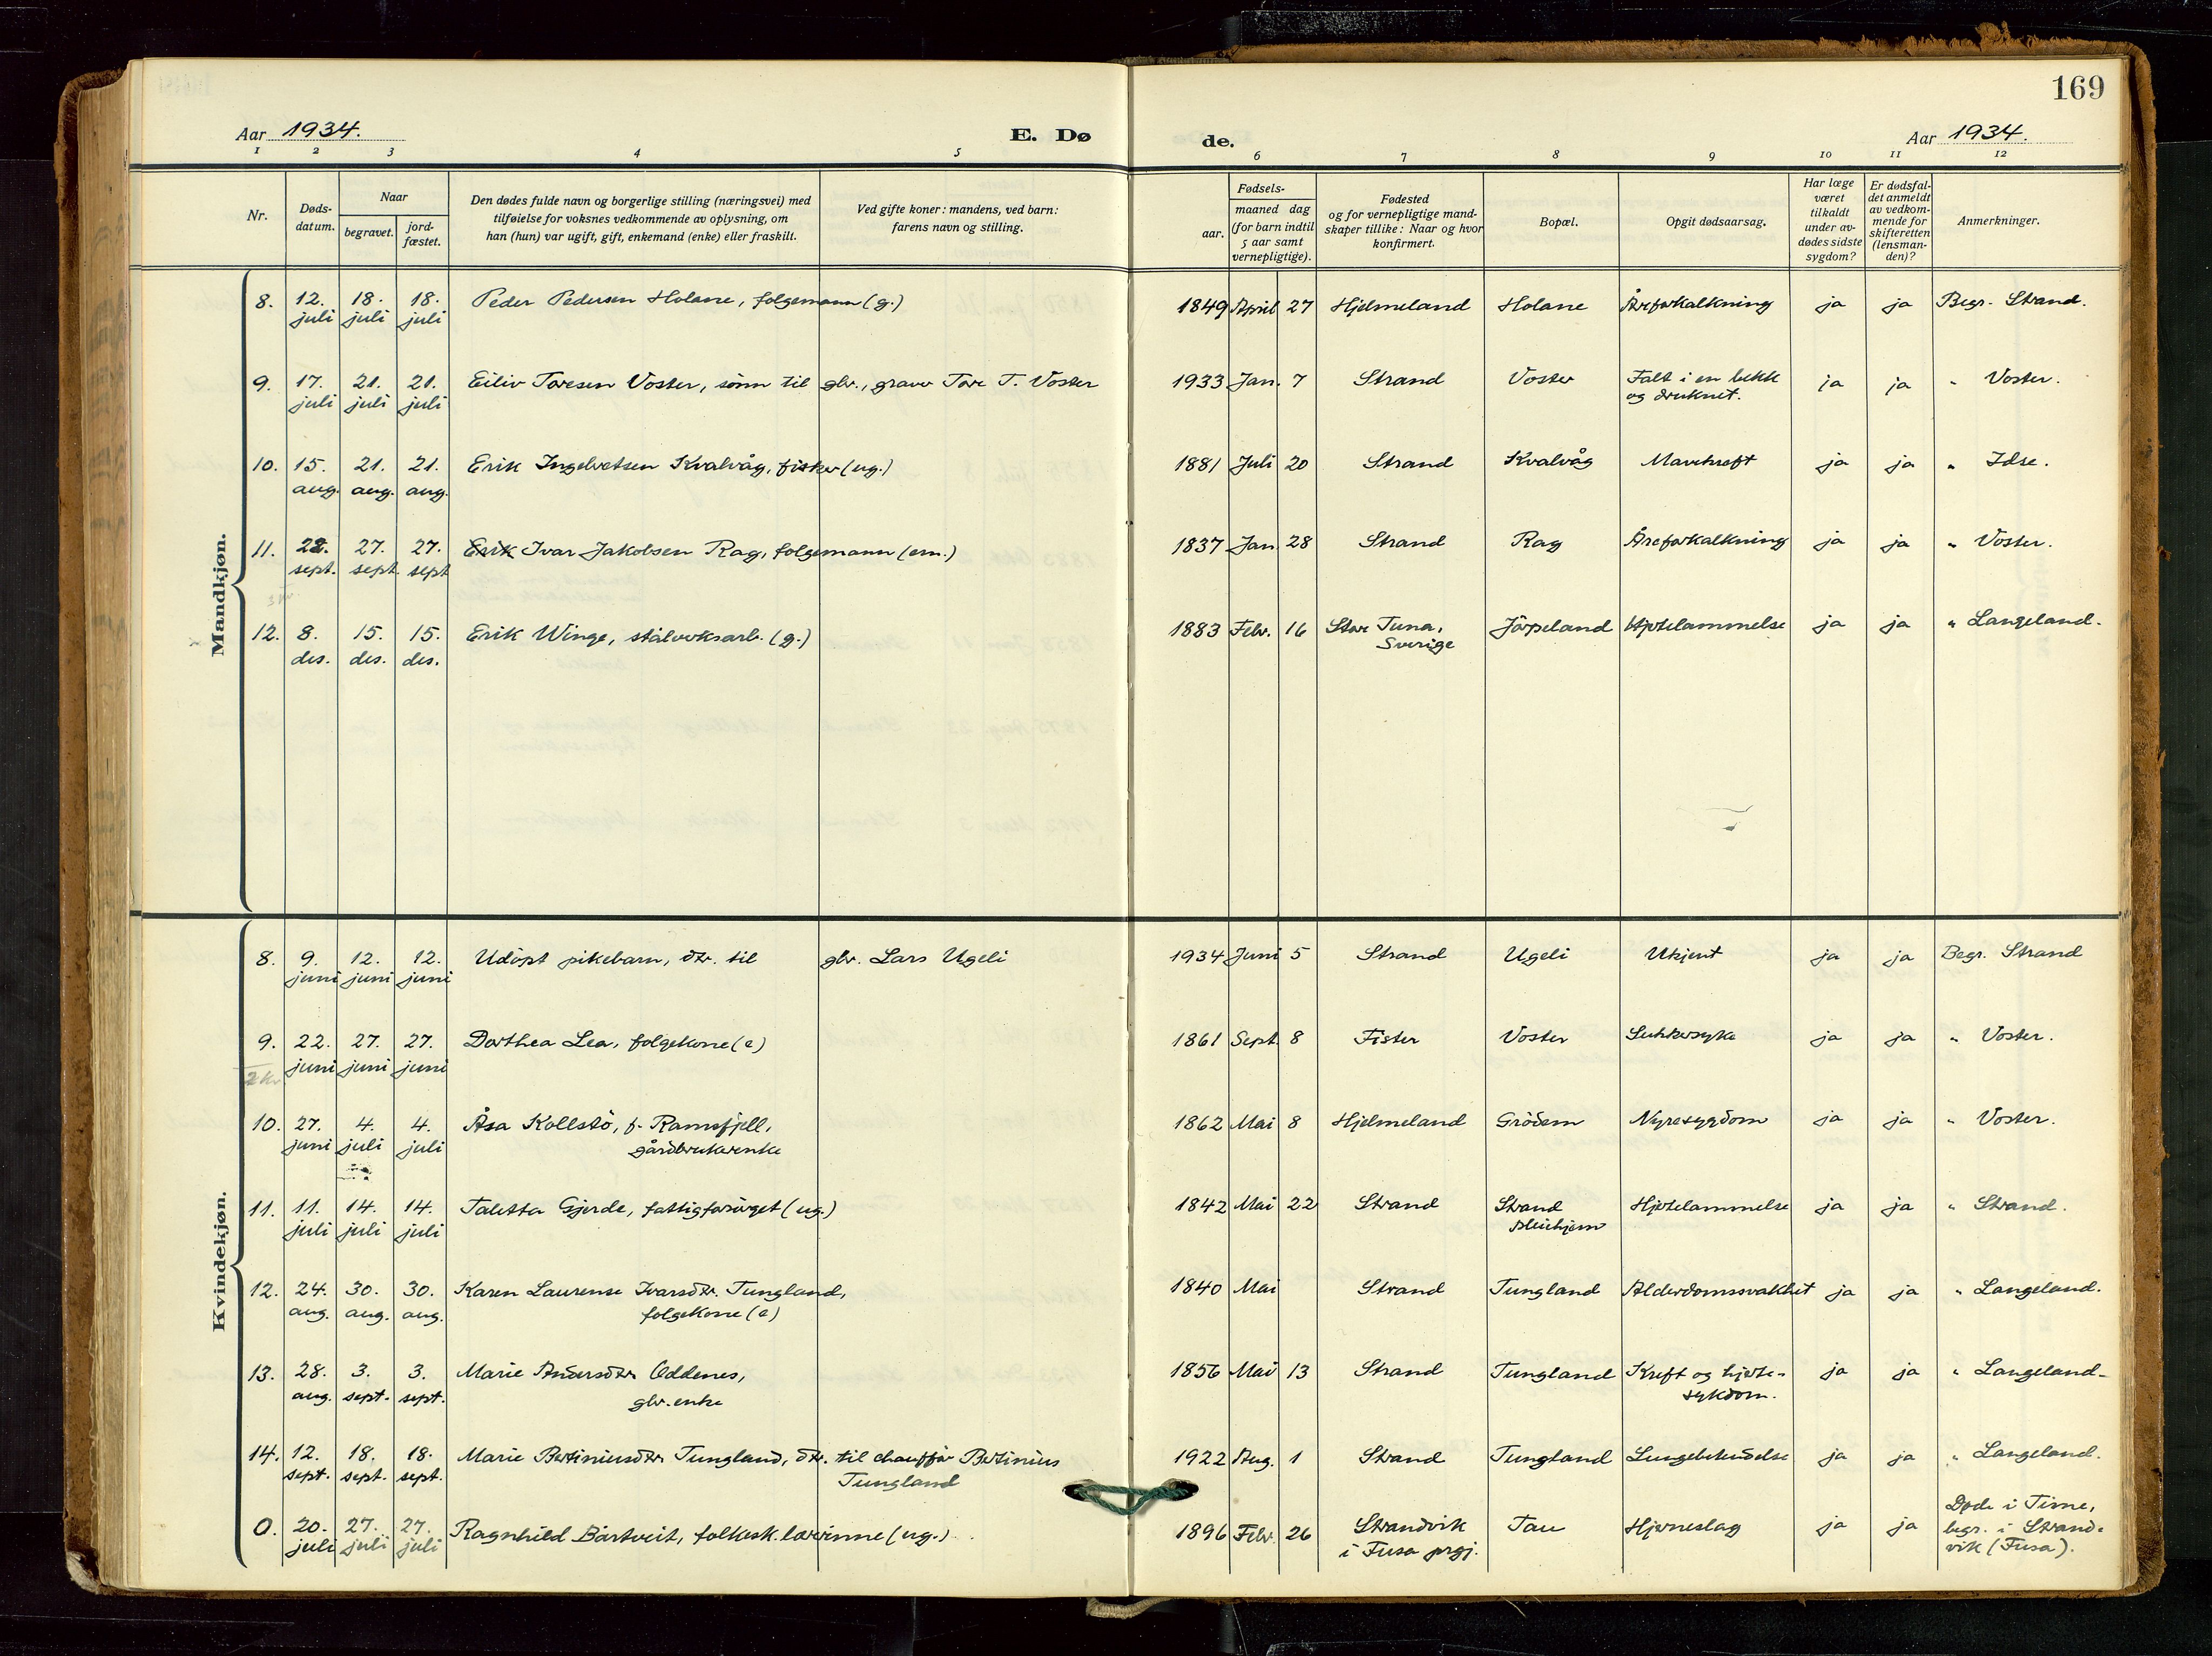 169
Aar 1934. E. Dø de. Aar 1934.
1 2 3 4 5 6 7 8 9 10 11 12
Nr. Døds-datum. Naar begravet. jord-fæstet. Den dødes fulde navn og borgerlige stilling (næringsvei) med tilføielse for voksnes vedkommende av oplysning, om han (hun) var ugift, gift, enkemand (enke) eller fraskilt. Ved gifte koner: mandens, ved barn: farens navn og stilling. Fødsels- aar. maaned dag (for barn indtil 5 aar samt vernepligtige). Fødested og for vernepligtige mand-skaper tillike: Naar og hvor konfirmert. Bopæl. Opgit dødsaarsag. Har læge været tilkaldt under av-dødes sidste sygdom? Er dødsfal-det anmeldt av vedkom-mende for skifteretten (lensman-den)? Anmerkninger.
Mandkjøn.
8. 12. juli 18. juli 18. juli Peder Pedersen Holane, folgemann (g.) 1849 April 27 Hjelmeland Holane Åreforkalkning ja ja Begr. Strand.
9. 17. juli 21. juli 21. juli Eiliv Toresen Voster, sønn til gbr., graver Tore T. Voster 1933 Jan. 7 Strand Voster Falt i en bekk og druknet. ja ja " Voster.
10. 15. aug. 21. aug. 21. aug. Erik Ingelvetsen Kvalvåg, fisker (ug.) 1881 Juli 20 Strand Kvalvåg Mavekreft ja ja " Idse.
11. 22. sept. 27. sept. 27. sept Erik Ivar Jakobsen Rag, folgemann (em.) 1837 Jan 28 Strand Rag Åreforkalkning ja ja " Voster.
12. 8. des. 15. des. 15. des. Erik Winge, stålverksarb. (g.) 1883 Febr. 16 Stora Tuna, Sverige Jörpeland Hjertelammelse ja ja " Langeland.
Kvindekjøn.
8. 9. juni 12. juni 12. juni Udöpt pikebarn, dtr. til gbr. Lars Ugeli 1934 Juni 5 Strand Ugeli Ukjent ja ja Begr. Strand
9. 22. juni 27. juni 27. juni Dorthea Lea, folgekone (e) 1861 Sept. 8 Fister Voster Sukkersyke ja ja " Voster.
2 kv.
10. 27. juni 4. juli 4. juli Åsa Kollstö, f. Ramsfjell, gårdbrukerenke 1862 Mai 8 Hjelmeland Grödem Nyresygdom ja ja " Voster.
11. 11. juli 14. juli 14. juli Taletta Gjerde, fattigforsörget (ug.) 1842 Mai 22 Strand Strand pleiehjem Hjertelammelse ja ja " Strand.
12. 24. aug. 30. aug. 30. aug. Karen Laurense Ivarsdtr. Tungland, folgekone (e) 1840 Mai Strand Tungland Alderdomssvakhet ja ja " Langeland.
13. 28. aug. 3. sept. 3. sept. Marie Andersdtr Oddenes, gbr. enke 1856 Mai 13 Strand Tungland Kreft og hjerte-sykdom. ja ja " Langeland.
14. 12. sept. 18. sept. 18. sept. Marie Bertiniusdtr Tungland, dtr. til chauffør Bertinius Tungland 1922 Aug. 1 Strand Tungland Lungebetendelse ja ja " Langeland.
0. 20. juli 27. juli 27. juli Ragnhild Bårtveit, folkesk. lærerinne (ug.) 1896 Febr. 26 Strandvik i Fusa prgj. Tau Hjerneslag ja ja Døde i Time, begr. i Strand-vik (Fusa).